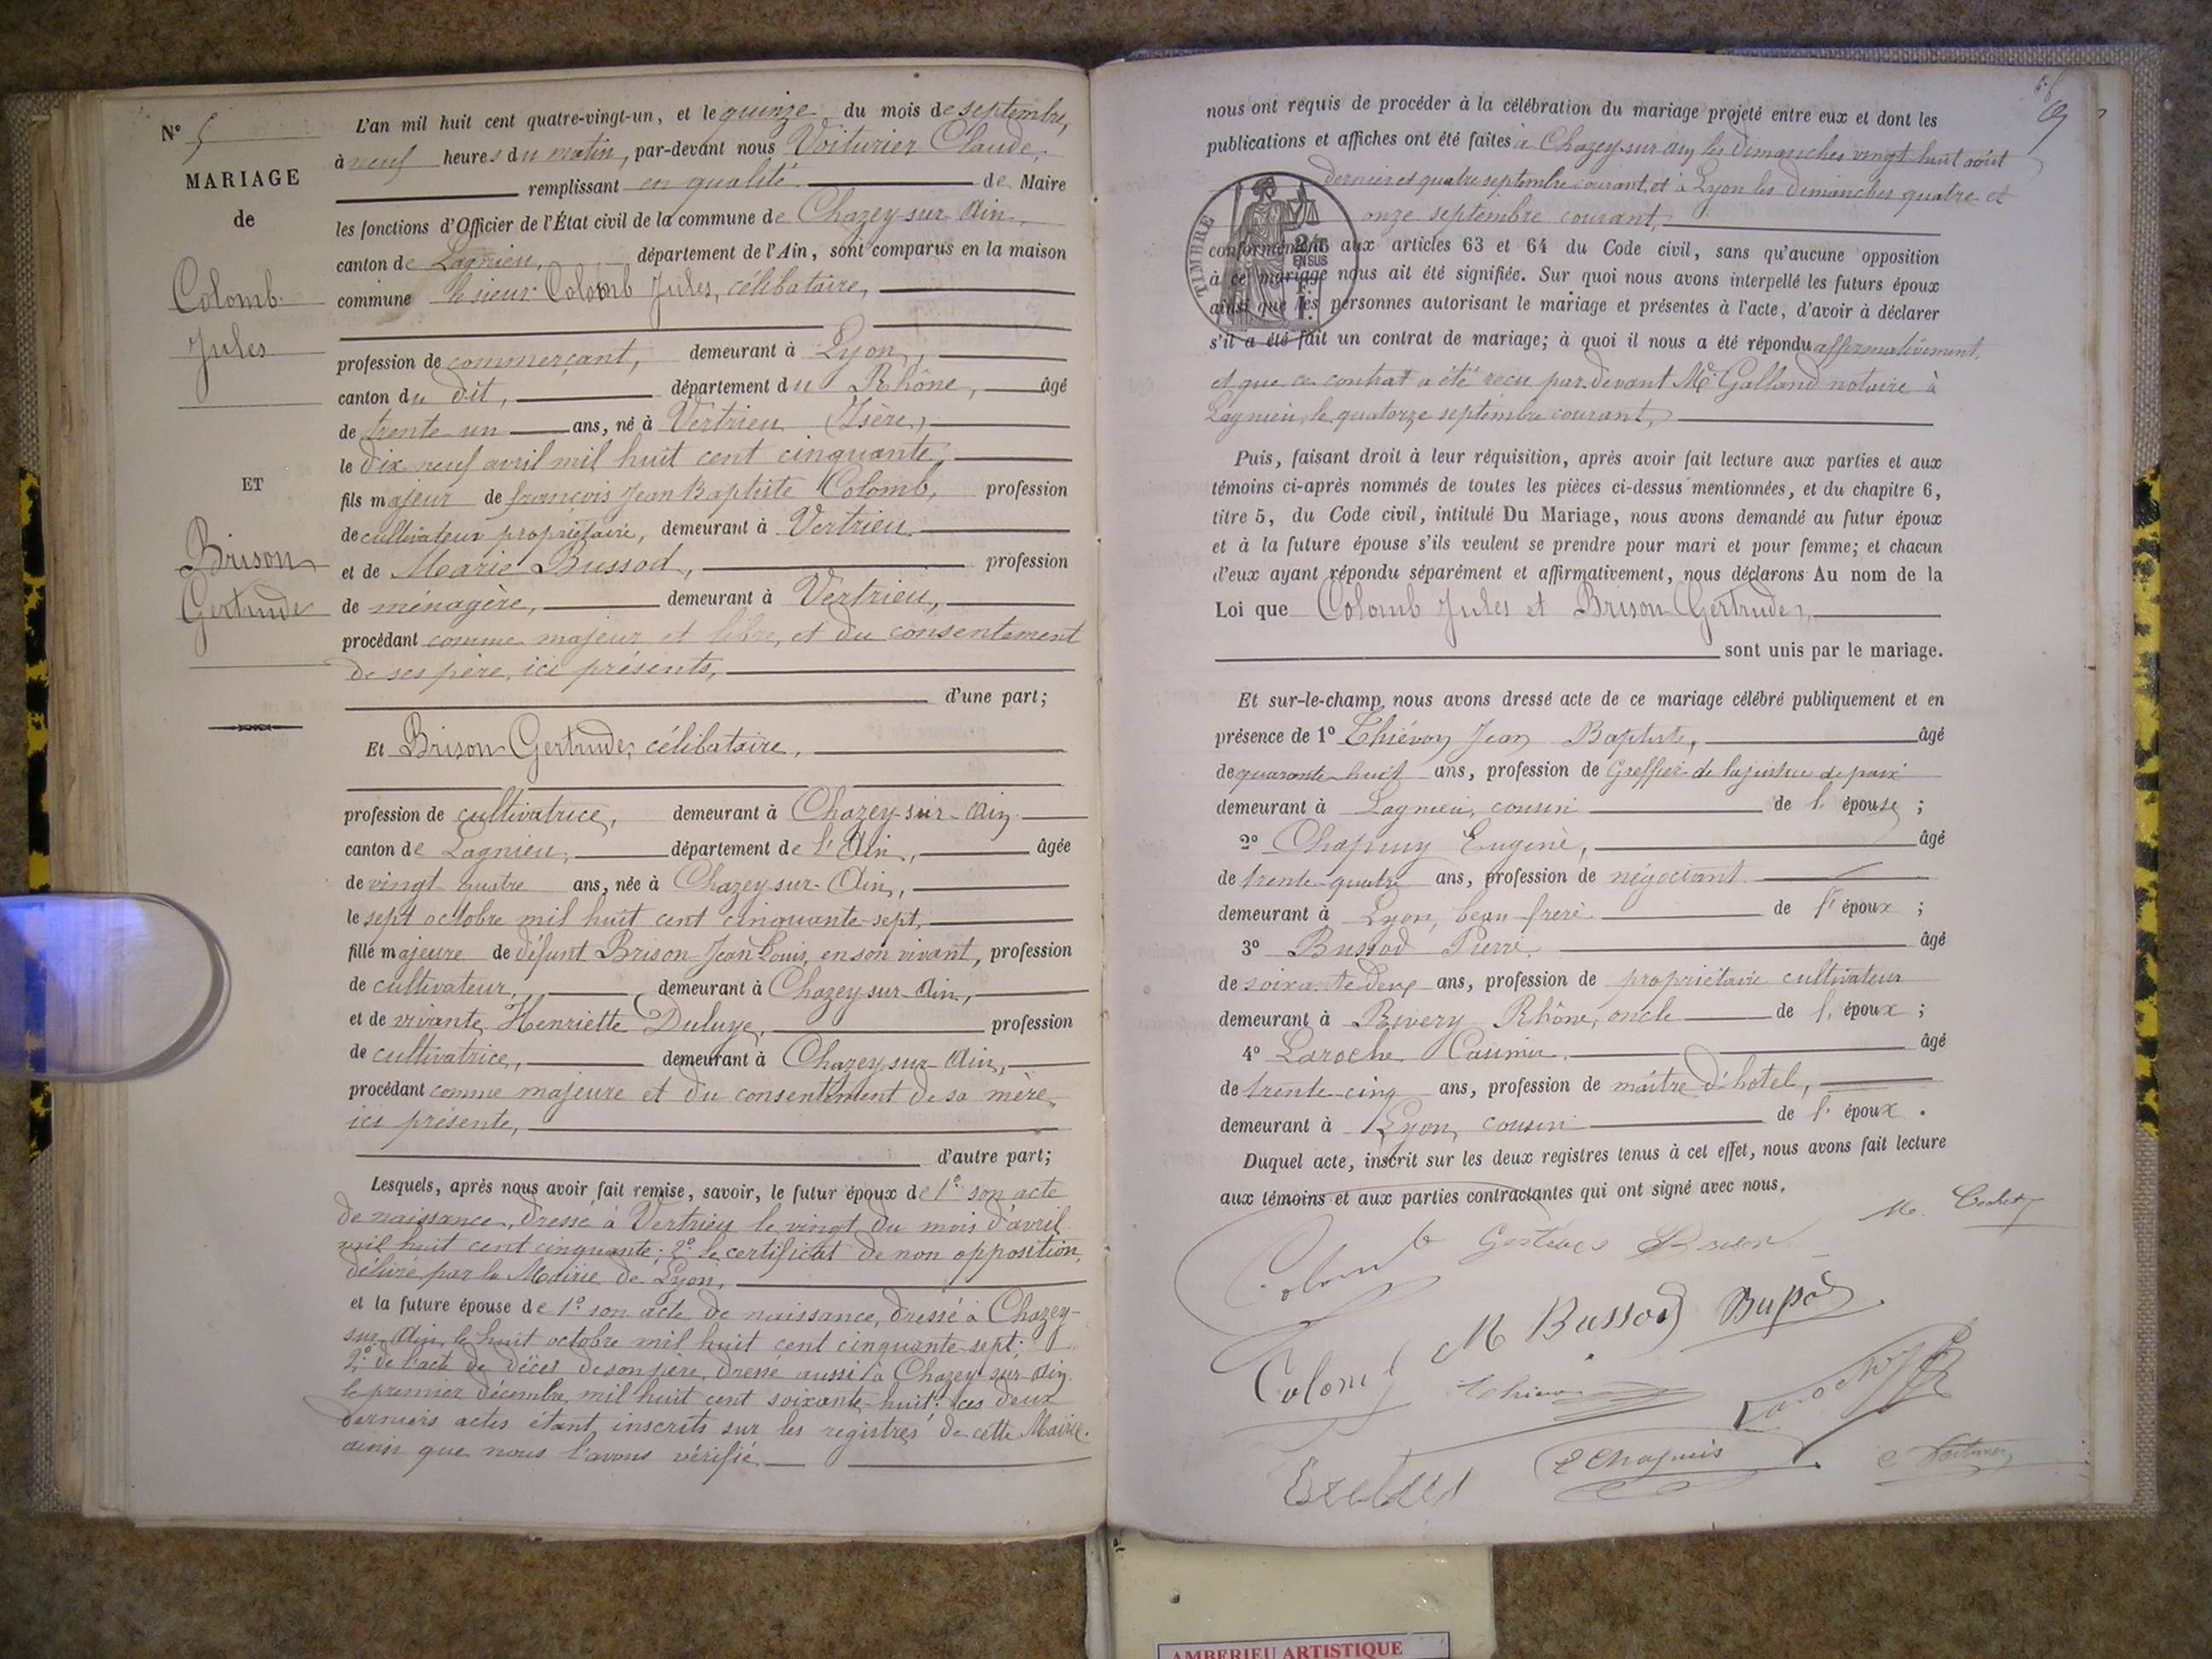 N° 5
MARIAGE
de
Colomb
Jules
ET
Brison
Gertrude
L'an mil huit cent quatre-vingt-un, et le quinze du mois de septembre,
à neuf heures du matin, par-devant nous Voiturier Claude,
remplissant en qualité de Maire
les fonctions d'Officier de l'État civil de la commune de Chazey-sur-Ain,
canton de Lagnieu, département de l'Ain, sont comparus en la maison
commune le sieur Colomb Jules, célibataire,
profession de commerçant, demeurant à Lyon,
canton du dit, département du Rhône, âgé
de trente un ans, né à Vertrieu (Isère)
le dix neuf avril mil huit cent cinquante,
fils majeur de françois Jean Baptiste Colomb, profession
de cultivateur propriétaire, demeurant à Vertrieu
et de Marie Bussod, profession
de ménagère, demeurant à Vertrieu,
procédant comme majeur et libre, et du consentement
de ses père, ici présents,
d'une part;
Et Brison Gertrude, célibataire,
profession de cultivatrice, demeurant à Chazey-sur-Ain
canton de Lagnieu, département de l'Ain, âgée
de vingt quatre ans, née à Chazey-sur-Ain,
le sept octobre mil huit cent cinquante-sept,
fille majeure de défunt Brison Jean Louis, en son vivant, profession
de cultivateur, demeurant à Chazey-sur-Ain,
et de vivante Henriette Duluye, profession
de cultivatrice, demeurant à Chazey-sur-Ain,
procédant comme majeure et du consentement de sa mère,
ici présente,
d'autre part;
Lesquels, après nous avoir fait remise, savoir, le futur époux de 1° son acte
de naissance, dressé à Vertrieu le vingt du mois d'avril
mil huit cent cinquante; 2° le certificat de non opposition,
délivré par la Mairie de Lyon,
et la future épouse de 1° son acte de naissance, dressé à Chazey-
sur-Ain, le huit octobre mil huit cent cinquante-sept;
2° de l'acte de décès de son père, dressé aussi à Chazey-sur-Ain
le premier décembre mil huit cent soixante-huit; ces deux
derniers actes étant inscrits sur les registres de cette Mairie.
ainsi que nous l'avons vérifié
nous ont requis de procéder à la célébration du mariage projeté entre eux et dont les
publications et affiches ont été faites à Chazey-sur-ain les dimanches vingt-huit août
dernier et quatre septembre courant, et à Lyon les dimanches quatre et
onze septembre courant,
TIMBRE
2/10
EN SUS
conformément aux articles 63 et 64 du Code civil, sans qu'aucune opposition
à ce mariage nous ait été signifiée. Sur quoi nous avons interpellé les futurs époux
ainsi que les personnes autorisant le mariage et présentes à l'acte, d'avoir à déclarer
s'il a été fait un contrat de mariage; à quoi il nous a été répondu affirmativement,
et que ce contrat a été reçu par devant Me Galland notaire à
Lagnieu, le quatorze septembre courant,
Puis, faisant droit à leur réquisition, après avoir fait lecture aux parties et aux
témoins ci-après nommés de toutes les pièces ci-dessus mentionnées, et du chapitre 6,
titre 5, du Code civil, intitulé Du Mariage, nous avons demandé au futur époux
et à la future épouse s'ils veulent se prendre pour mari et pour femme; et chacun
d'eux ayant répondu séparément et affirmativement, nous déclarons Au nom de la
Loi que Colomb Jules et Brison Gertrude,
sont unis par le mariage.
Et sur-le-champ nous avons dressé acte de ce mariage célébré publiquement et en
présence de 1° Thiévon Jean Baptiste, âgé
de quarante-huit ans, profession de Greffier de la justice de paix
demeurant à Lagnieu, cousin de l'épouse;
2° Chapuy Eugène, âgé
de trente-quatre ans, profession de négociant
demeurant à Lyon, beau frère de l'époux;
3° Bussod Pierre, âgé
de soixante deux ans, profession de propriétaire cultivateur
demeurant à Rivery Rhône, oncle de l'époux;
4° Laroche Casimir, âgé
de trente-cinq ans, profession de maître d'hotel,
demeurant à Lyon, cousin de l'époux.
Duquel acte, inscrit sur les deux registres tenus à cet effet, nous avons fait lecture
aux témoins et aux parties contractantes qui ont signé avec nous.
Colomb
M Bussod
Colomb
E Chapuis
AMBERIEU ARTISTIQUE